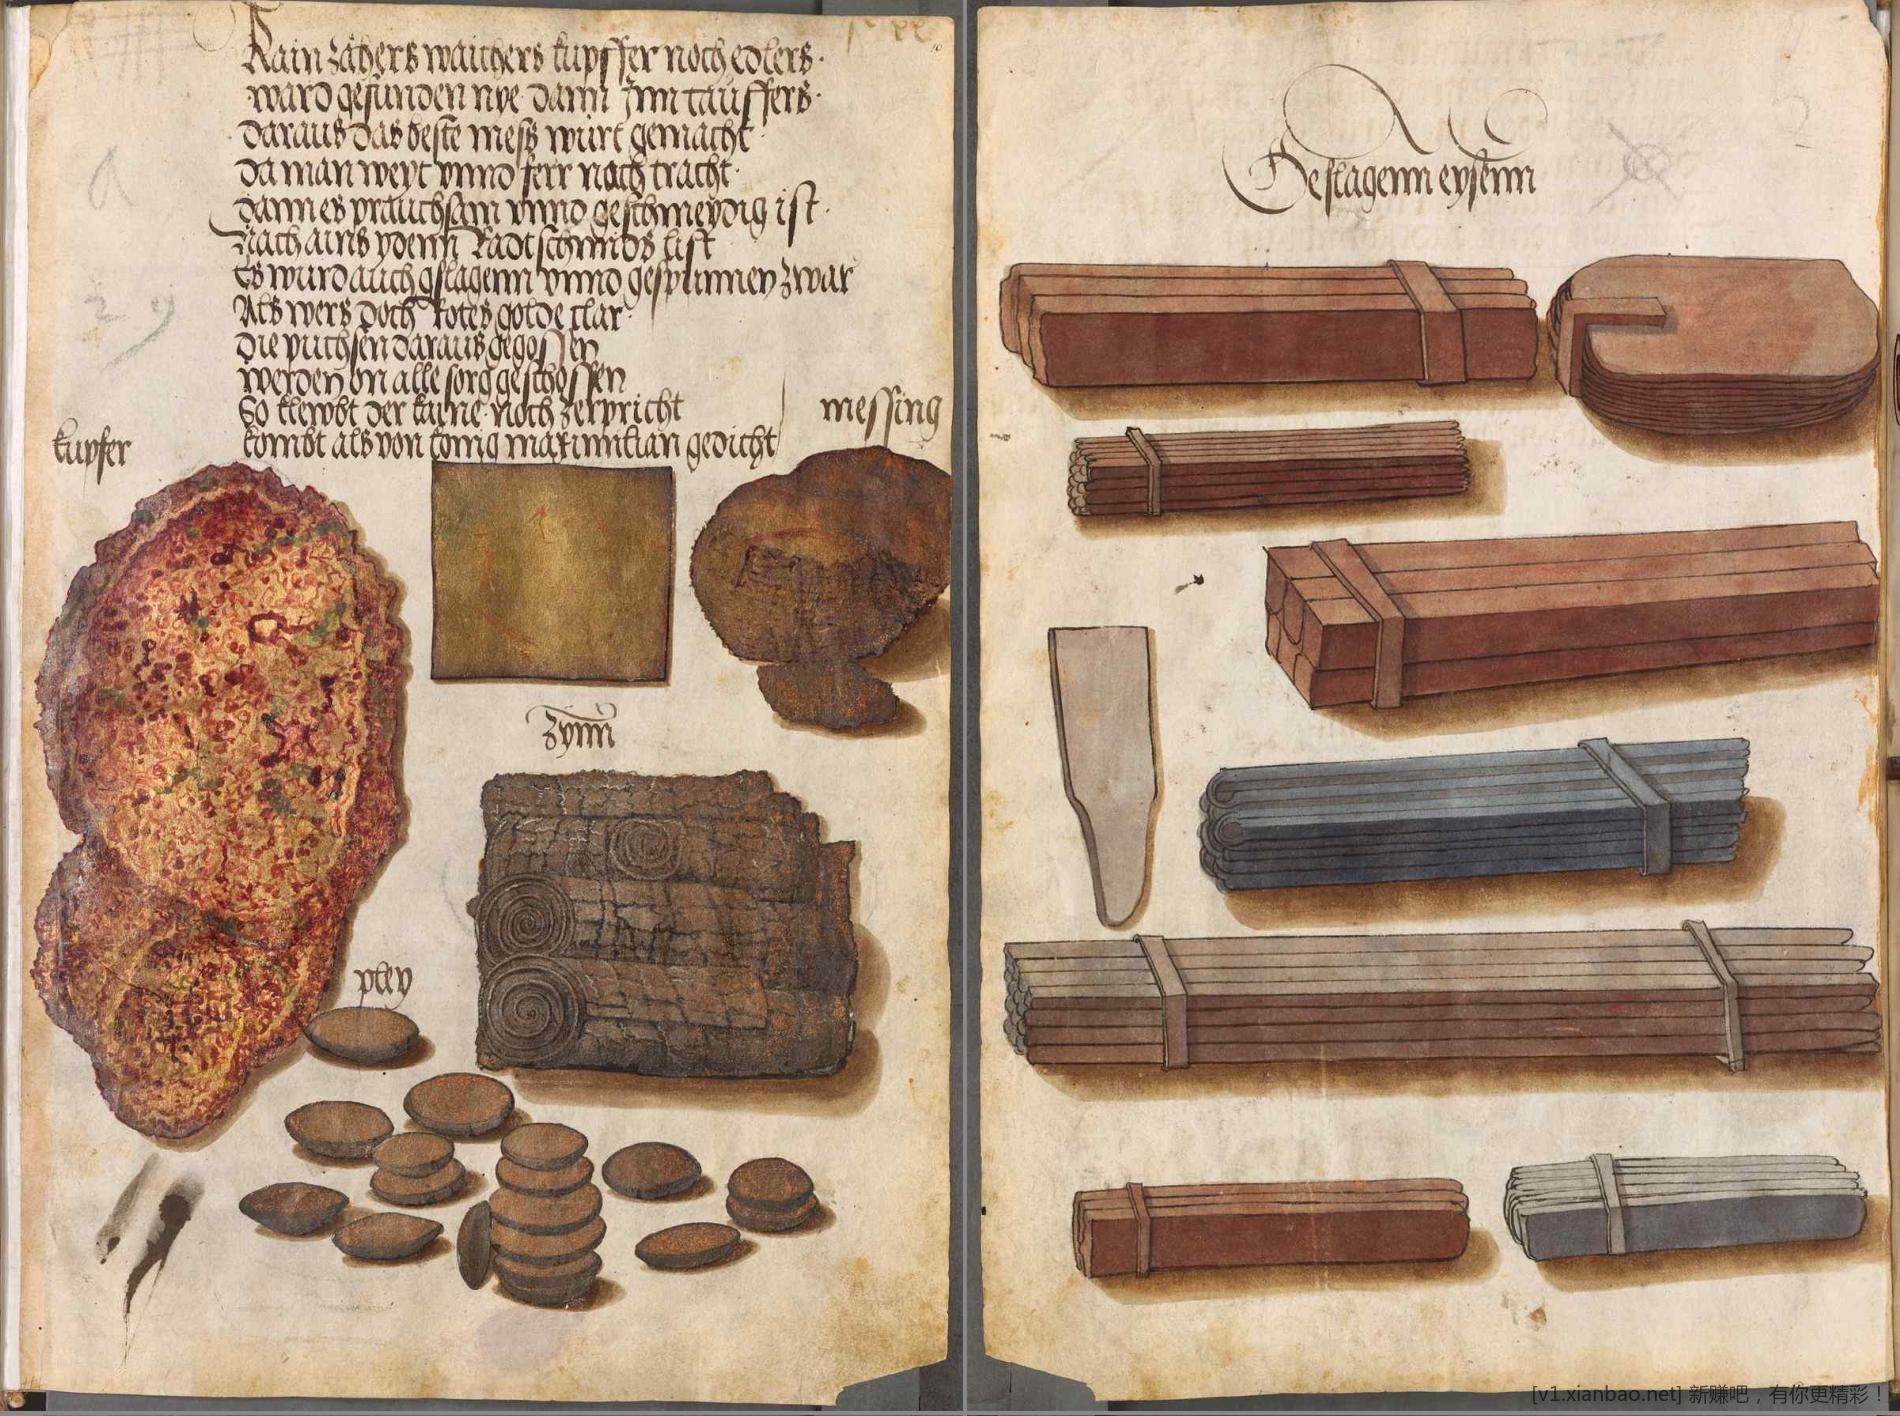 Kain zähers waichers kupffer noch edlers
ward gefunden nye dann Inn tauffers
daraus das beste mess würt gemacht
da man weyt vnnd ferr nach tracht
dann es prauchsam vnnd geschmeydig ist
nach ains ydenn Radtschmids list
Es wurd auch gslagenn vnnd gespunnen zwar
Als wers doch Rotes golde clar
die puchsen daraus gegossen
werden on alle sorg geschossen
So klewbt der kaine noch zerpricht
kombt als von konig maximilian gedicht
kupfer
messing
zynn
pley
Geslagenn eysenn
[v1.xianbao.net] 新赚吧，有你更精彩！